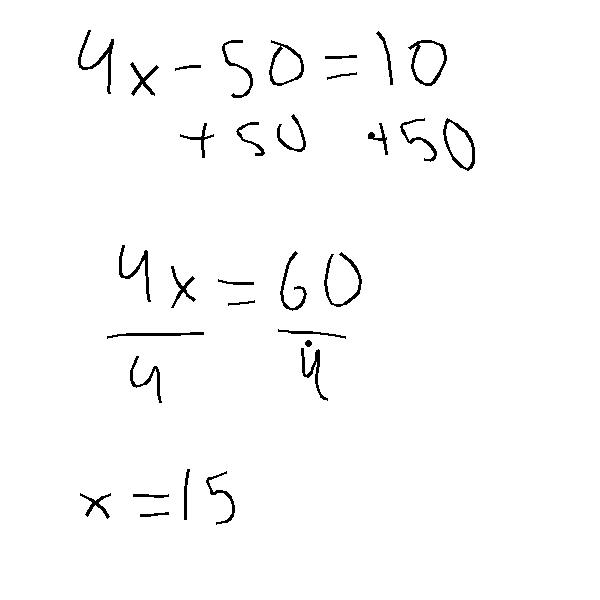 4x - 50 = 10
+50 +50
4x = 60
4 4
x = 15